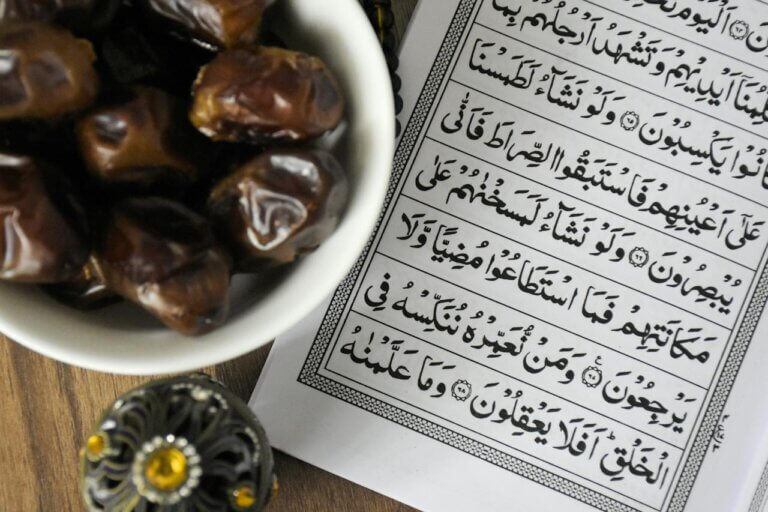 اَلْيَوْمَ
اَيْدِيْهِمْ وَتَشْهَدُ اَرْجُلُهُمْ بِمَا
كَانُوْا يَكْسِبُوْنَ ﴿۶۵﴾ وَلَوْ نَشَآءُ لَطَمَسْنَا
عَلٰٓى اَعْيُنِهِمْ فَاسْتَبَقُوا الصِّرَاطَ فَاَنّٰى
يُبْصِرُوْنَ ﴿۶۶﴾ وَلَوْ نَشَآءُ لَمَسَخْنٰهُمْ عَلٰى
مَكَانَتِهِمْ فَمَا اسْتَطَاعُوْا مُضِيًّا وَّلَا
يَرْجِعُوْنَ ﴿۶۷﴾ وَمَنْ نُّعَمِّرْهُ نُنَكِّسْهُ فِى
الْخَلْقِ ؕ اَفَلَا يَعْقِلُوْنَ ﴿۶۸﴾ وَمَا عَلَّمْنٰهُ